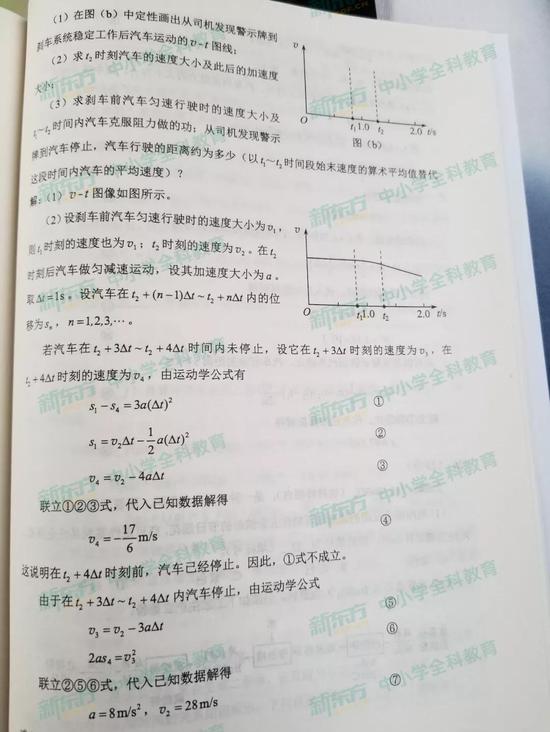 (1) 在图（b）中定性画出从司机发现警示牌到
刹车系统稳定工作后汽车运动的v-t图线；
(2) 求t₂时刻汽车的速度大小及此后的加速度
大小；
(3) 求刹车前汽车匀速行驶时的速度大小及
t₁~t₂时间内汽车克服阻力做的功；从司机发现警示
牌到汽车停止，汽车行驶的距离约为多少（以t₁~t₂时间段始末速度的算术平均值替代
这段时间内汽车的平均速度）？
v
O
t₁1.0 t₂ 2.0 t/s
图（b）
解：(1) v-t图像如图所示。
(2) 设刹车前汽车匀速行驶时的速度大小为v₁，
则t₁时刻的速度也为v₁；t₂时刻的速度为v₂。在t₂
时刻后汽车做匀减速运动，设其加速度大小为a。
取Δt=1s。设汽车在t₂+(n-1)Δt~t₂+nΔt内的位
移为sₙ，n=1,2,3,⋯。
v
O
t₁1.0 t₂ 2.0 t/s
若汽车在t₂+3Δt~t₂+4Δt时间内未停止，设它在t₂+3Δt时刻的速度为v₃，在
t₂+4Δt时刻的速度为v₄，由运动学公式有
s₁-s₄=3a(Δt)² ①
s₁=v₂Δt-1/2a(Δt)² ②
v₄=v₂-4aΔt ③
联立①②③式，代入已知数据解得
v₄=-17/6m/s ④
这说明在t₂+4Δt时刻前，汽车已经停止。因此，①式不成立。
由于在t₂+3Δt~t₂+4Δt内汽车停止，由运动学公式
v₃=v₂-3aΔt ⑤
2as₄=v₃² ⑥
联立②⑤⑥式，代入已知数据解得
a=8m/s²，v₂=28m/s ⑦
新东方 中小学全科教育